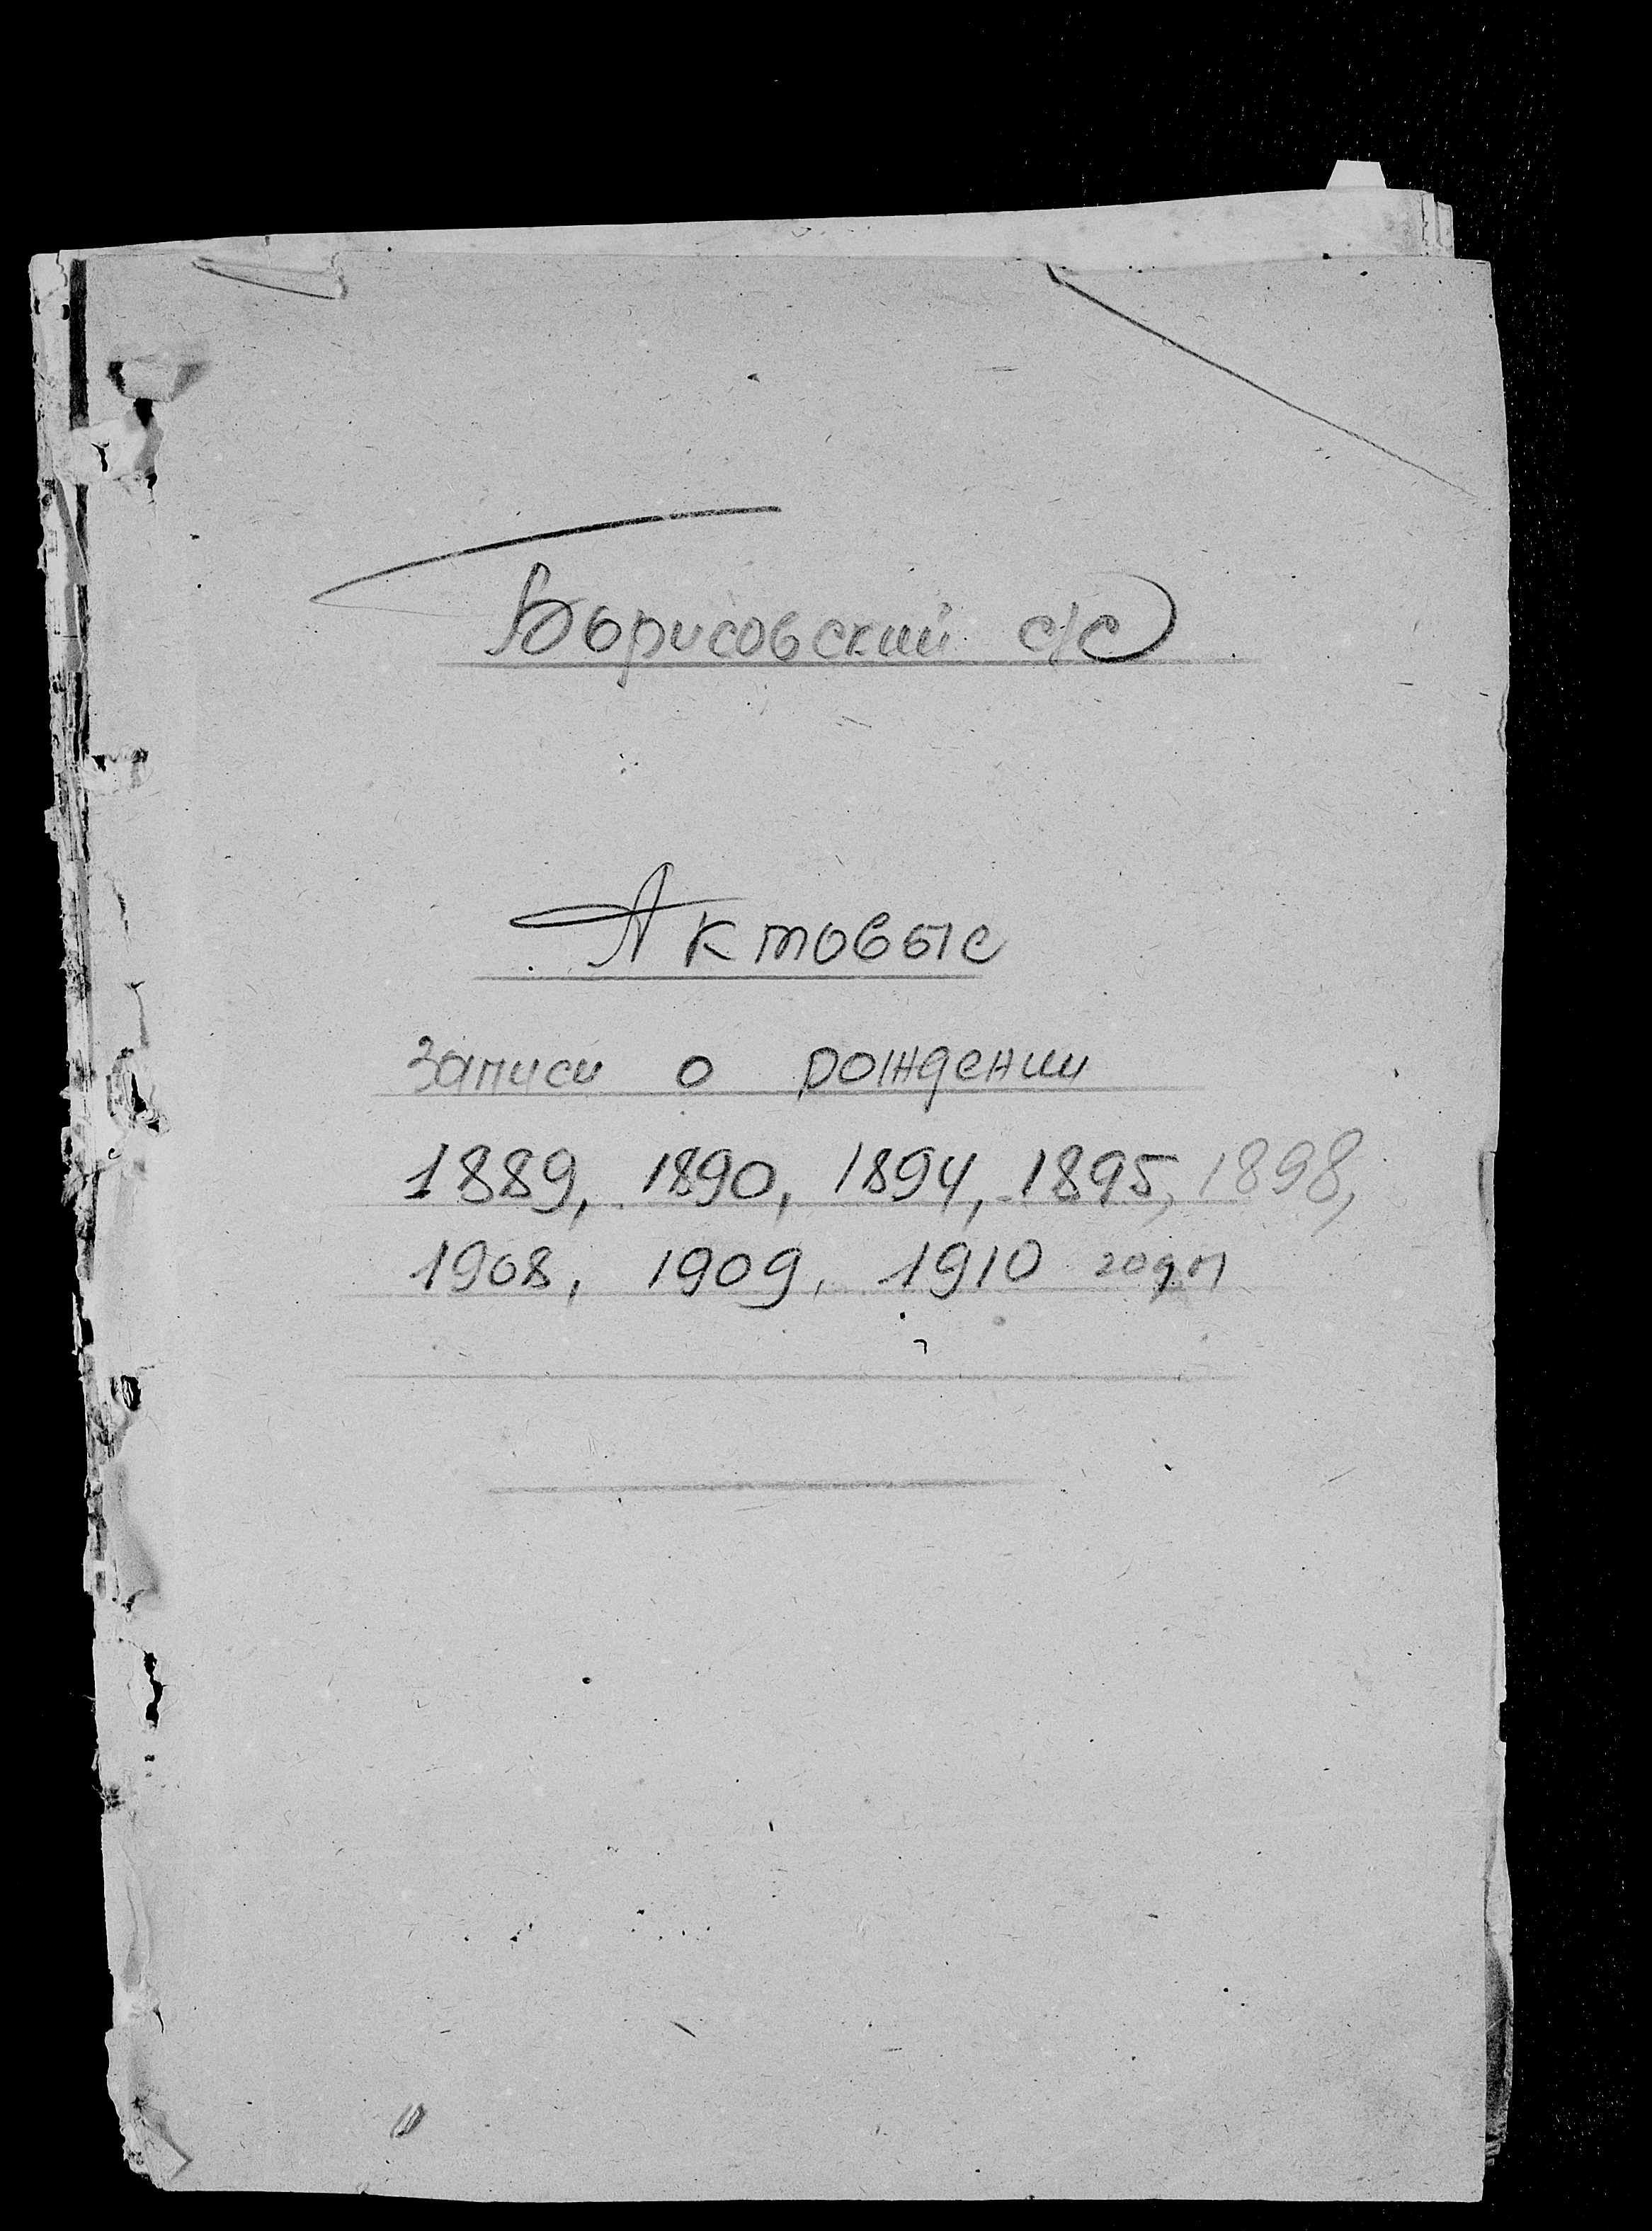 Борисовский с/с
Актовые
записи о рождении
1889, 1890, 1894, 1895, 1898,
1908, 1909, 1910 годы